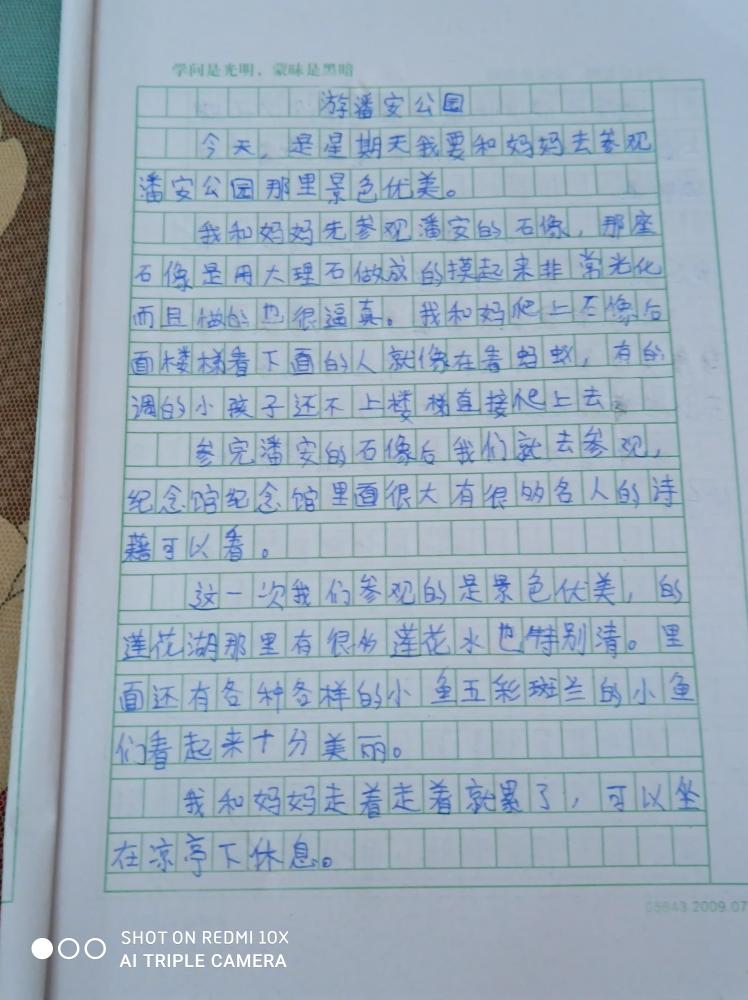 学问是光明，蒙昧是黑暗
游潘安公园
今天，是星期天我要和妈妈去参观
潘安公园那里景色优美。
我和妈妈先参观潘安的石像，那座
石像是用大理石做成的摸起来非常光化
而且做的也很逼真。我和妈爬上石像后
面楼梯看下面的人就像在看蚂蚁，有的
调的小孩子还不上楼梯直接爬上去
参完潘安的石像后我们就去参观，
纪念馆纪念馆里面很大有很多名人的诗
藉可以看。
这一次我们参观的是景色优美，的
莲花湖那里有很多莲花水也特别清。里
面还有各种各样的小鱼五彩斑兰的小鱼
们看起来十分美丽。
我和妈妈走着走着就累了，可以坐
在凉亭下休息。
05643 2009.07
SHOT ON REDMI 10X
AI TRIPLE CAMERA